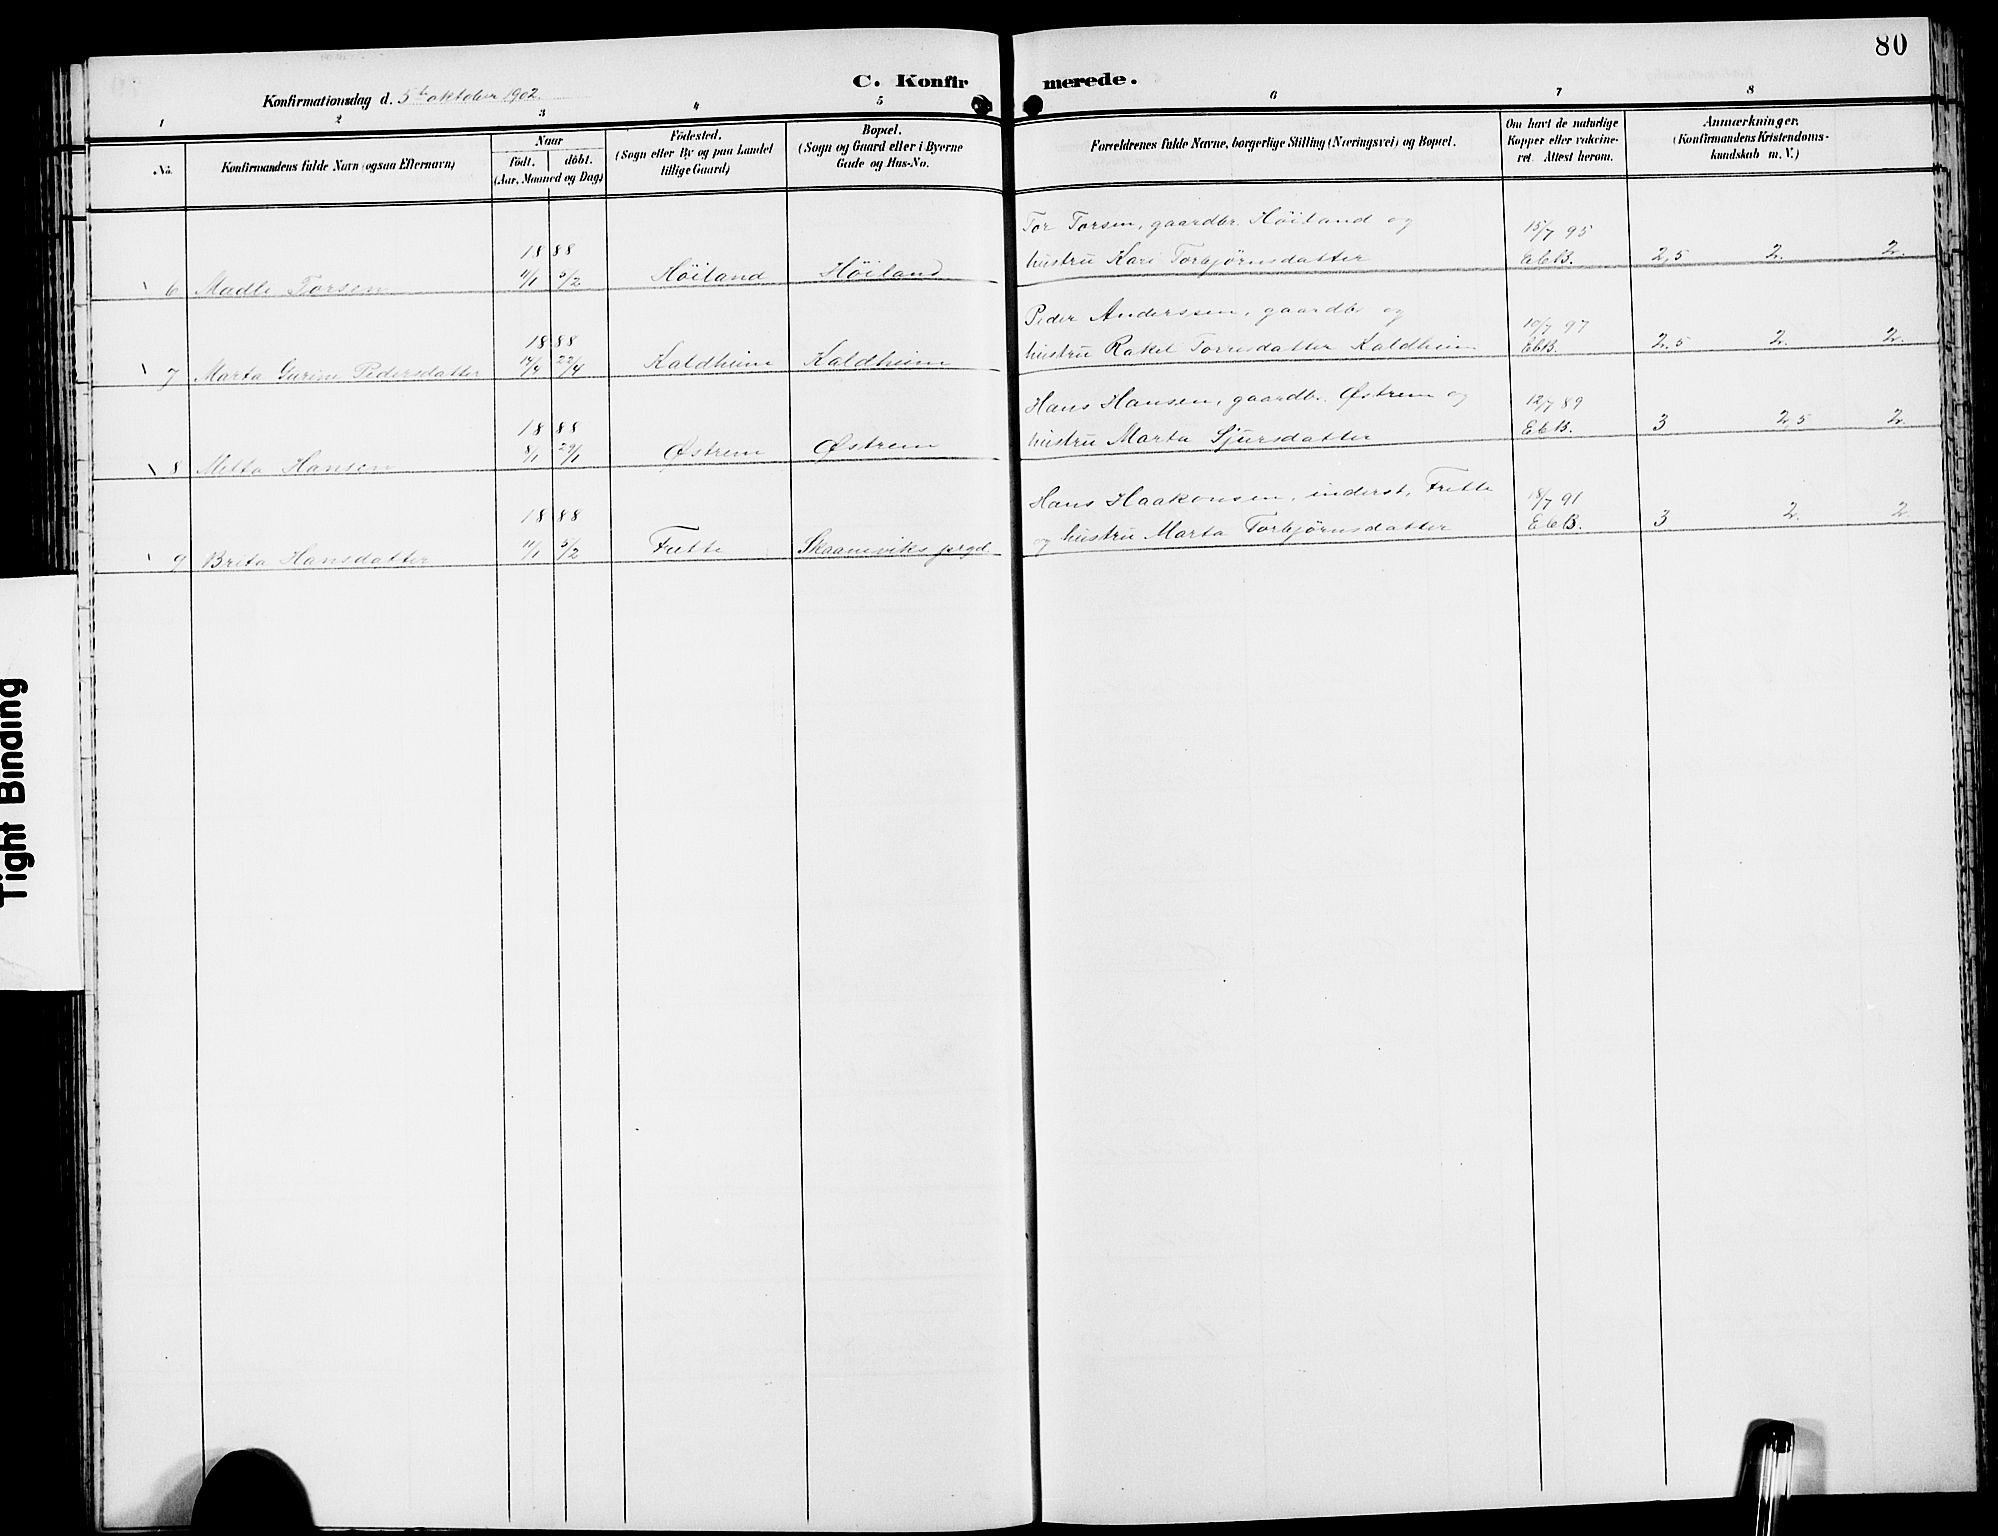 80
C. Konfirmerede.
Konfirmationsdag d. 5te oktober 1902.
1 2 3 4 5 6 7 8
No. Konfirmandens fulde Navn (ogsaa Efternavn) Naar født. døbt. (Aar, Maaned og Dag) Fødested. (Sogn eller By og paa Landet tillige Gaard) Bopæl. (Sogn og Gaard eller i Byerne Gade og Hus-No. Forældrenes fulde Navne, borgerlige Stilling (Næringsvei) og Bopæl. Om havt de naturlige Kopper eller vakcineret. Attest herom. Anmærkninger. (Konfirmandens Kristendomskundskab m. V.)
Tor Torsen, gaardbr. Höiland og 15/7 95
1888 hustru Kari Torbjørnsdatter EbB. 2,5 2. 2.
6 Madli Torsen 11/1 5/2 Höiland Höiland
Peder Anderssen, gaardbr og 10/7 97
1888 hustru Rakel Torresdatter Kaldheim EbB. 2,5 2. 2.
7 Marta Gurine Pedersdatter 14/4 22/4 Kaldheim Kaldheim
Hans Hansen, gaardbr. Østrem og 12/7 89
1888 hustru Marta Sjursdatter EbB. 3 2,5 2.
8 Melta Hansen 8/1 29/1 Østrem Østrem
Hans Haakonsen, inderst, Frette 18/7 91
1888 og hustru Marta Torbjørnsdatter EbB. 3 2. 2
9 Brita Hansdatter 11/1 5/2 Skaaneviks prgd.
Tight Binding